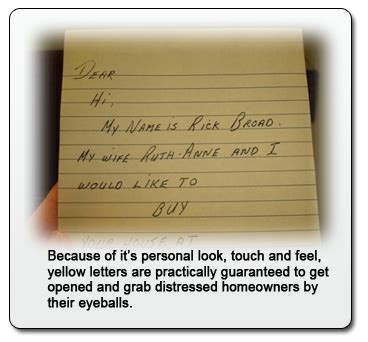 DEAR
HI,
MY NAME IS RICK BROAD.
MY WIFE RUTH-ANNE AND I
WOULD LIKE TO
BUY
YOUR HOUSE AT
Because of it's personal look, touch and feel,
yellow letters are practically guaranteed to get
opened and grab distressed homeowners by
their eyeballs.